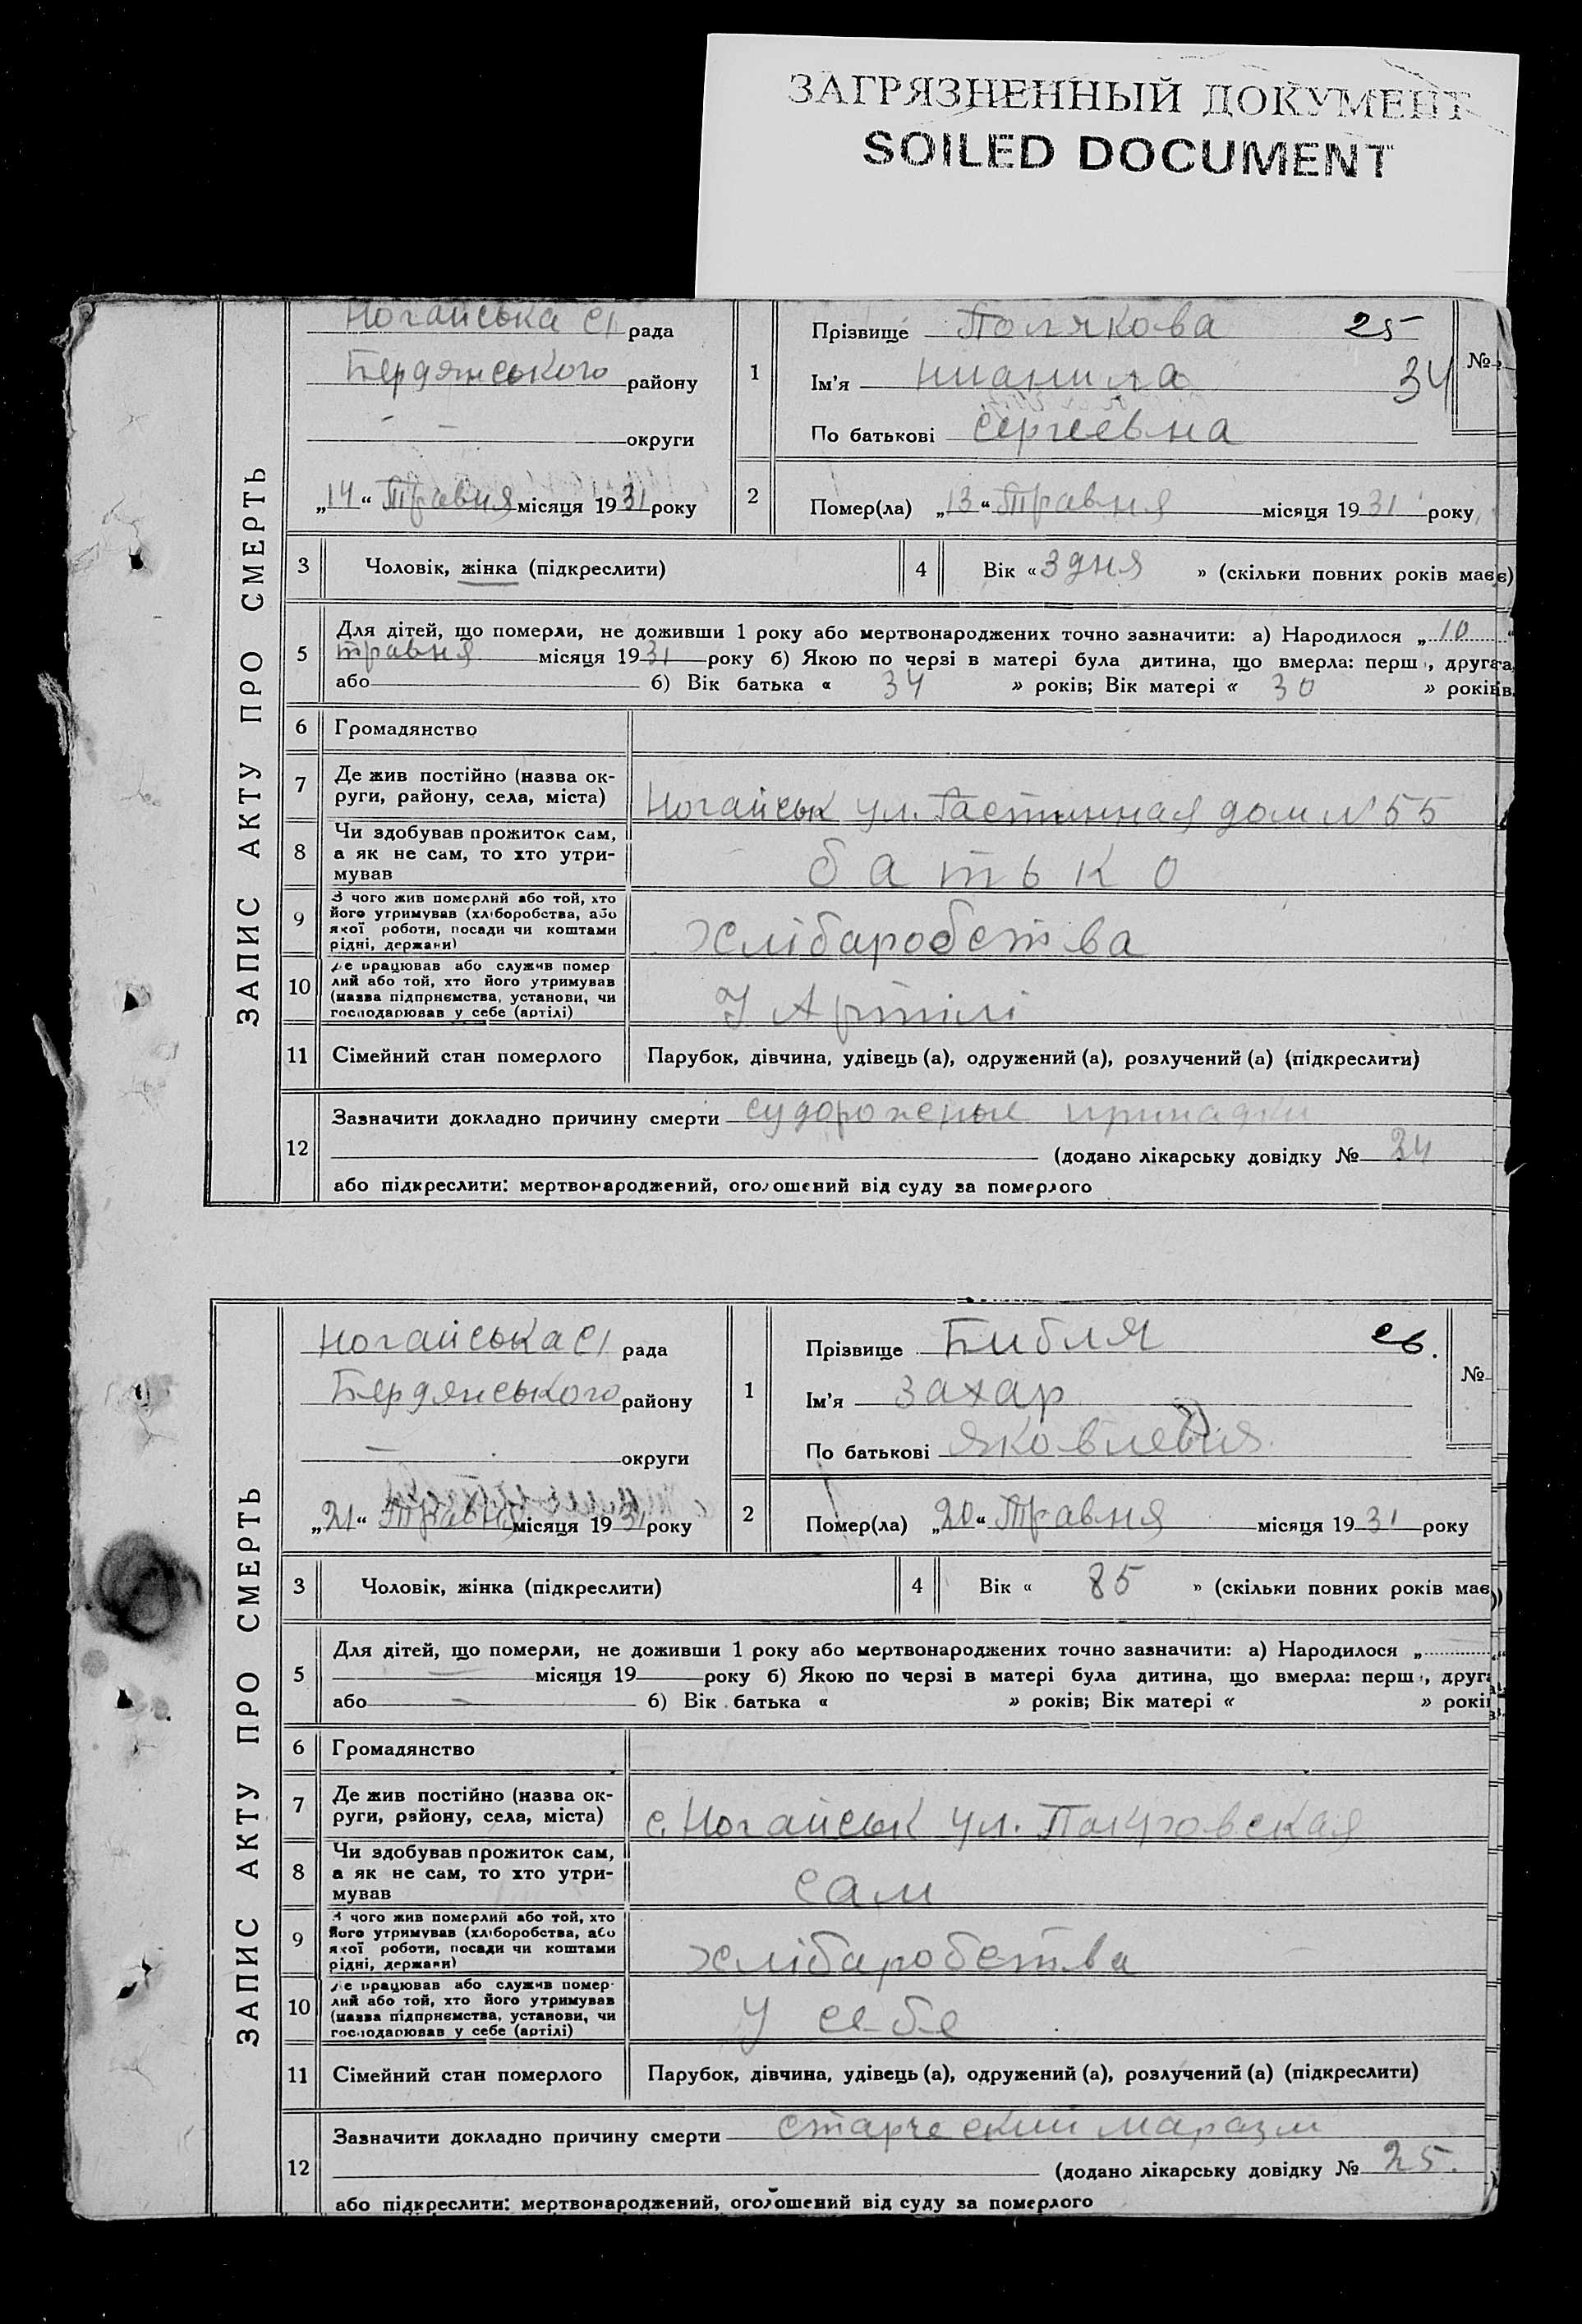 ЗАГРЯЗНЕННЫЙ ДОКУМЕНТ
SOILED DOCUMENT
ЗАПИС АКТУ ПРО СМЕРТЬ
Ногайська с/ рада
Бердянського району
— — округи
„14“ Травня місяця 1931 року
1
Прізвище Полякова 25
Ім'я 34
По батькові Сергеевна
№
2
Помер(ла) „13“ Травня місяця 1931 року
3 Чоловік, жінка (підкреслити)
4 Вік «3 дня» (скільки повних років має)
5 Для дітей, що померли, не доживши 1 року або мертвонароджених точно зазначити: а) Народилося „10“
травня місяця 1931 року б) Якою по черзі в матері була дитина, що вмерла: перш , друга,
або б) Вік батька « 34 » років; Вік матері « 30 » років.
6 Громадянство
7 Де жив постійно (назва ок-
руги, району, села, міста)
Ногайськ ул. Гастинная дом №55
8 Чи здобував прожиток сам,
а як не сам, то хто утри-
мував
батько
9 З чого жив померлий або той, хто
його утримував (хліборобства, або
якої роботи, посади чи коштами
рідні, держави)
хлібаробства
10 Де працював або служив помер
лий або той, хто його утримував
(назва підприємства, установи, чи
господарював у себе (артілі)
У Артілі
11 Сімейний стан померлого
Парубок, дівчина, удівець (а), одружений (а), розлучений (а) (підкреслити)
12 Зазначити докладно причину смерти судорожные припадки
(додано лікарську довідку № 24
або підкреслити: мертвонароджений, оголошений від суду за померлого
ЗАПИС АКТУ ПРО СМЕРТЬ
Ногайська с/ рада
Бердянського району
— округи
„21“ Травня місяця 1931 року
1
Прізвище Библя
Ім'я Захар
По батькові
№
2
Помер(ла) „20“ Травня місяця 1931 року
3 Чоловік, жінка (підкреслити)
4 Вік « 85 » (скільки повних років має
5 Для дітей, що померли, не доживши 1 року або мертвонароджених точно зазначити: а) Народилося „
— місяця 19 року б) Якою по черзі в матері була дитина, що вмерла: перш , друга
або — б) Вік батька « » років; Вік матері « » років
6 Громадянство
7 Де жив постійно (назва ок-
руги, району, села, міста)
с. Ногайськ ул.
8 Чи здобував прожиток сам,
а як не сам, то хто утри-
мував
сам
9 З чого жив померлий або той, хто
його утримував (хліборобства, або
якої роботи, посади чи коштами
рідні, держави)
хлібаробства
10 Де працював або служив помер-
лий або той, хто його утримував
(назва підприємства, установи, чи
господарював у себе (артілі)
У себе
11 Сімейний стан померлого
Парубок, дівчина, удівець (а), одружений (а), розлучений (а) (підкреслити)
12 Зазначити докладно причину смерти старческий маразм
(додано лікарську довідку № 25.
або підкреслити: мертвонароджений, оголошений від суду за померлого